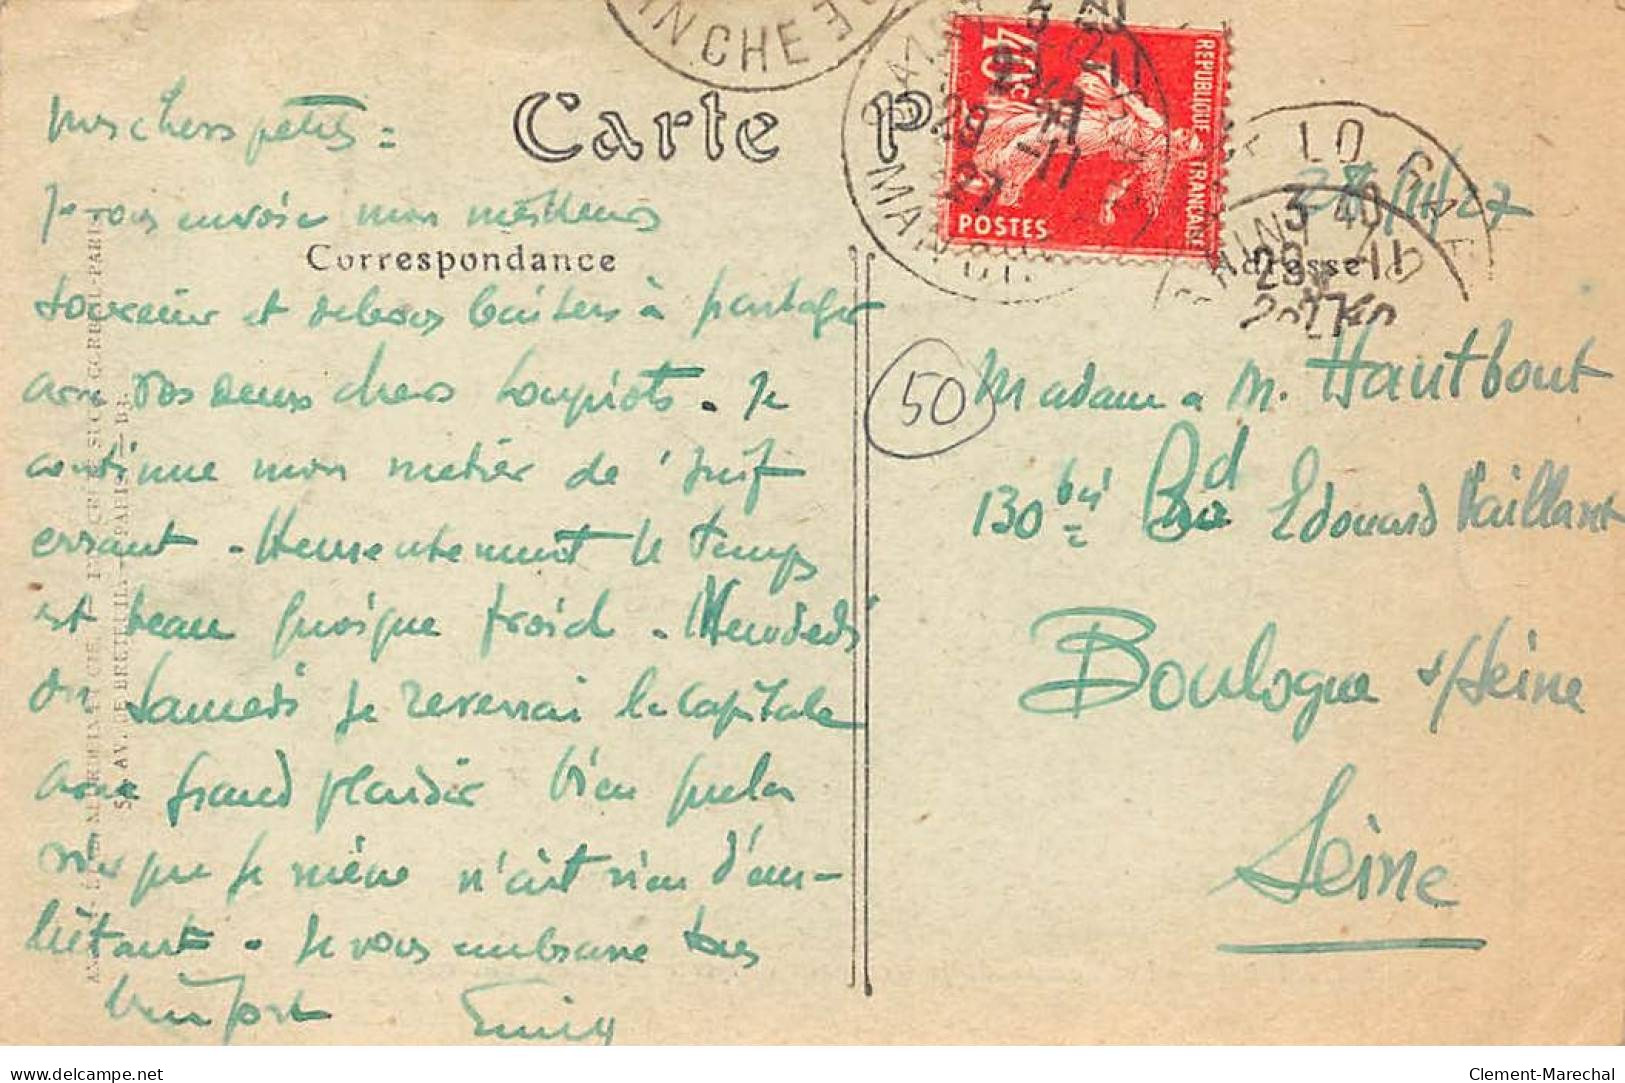 INCHE
Carte P
Correspondance
Adresse
40c
REPUBLIQUE FRANÇAISE
POSTES
MANCHE
20 -11
27
LO GARE
3 40
29 -11
28/11/27
mes chers petits =
Je vous envoie mes meilleurs
souvenirs et debons baisers à partager
avec vos deux chers loupiots. Je
continue mon métier de "Juif
errant. Heureusement le temps
est beau quoique froid. Vendredi
ou samedi je reverrai la capitale
avec grand plaisir bien que la
vie que je mène n'ait rien d'em-
bêtant. Je vous embrasse tous
bien fort
50
Madame & M. Hautbout
130 bis Bd Edouard Vaillant
Boulogne s/Seine
Seine
56, AV. DE BRETEUIL - PARIS
www.delcampe.net
Clement-Marechal